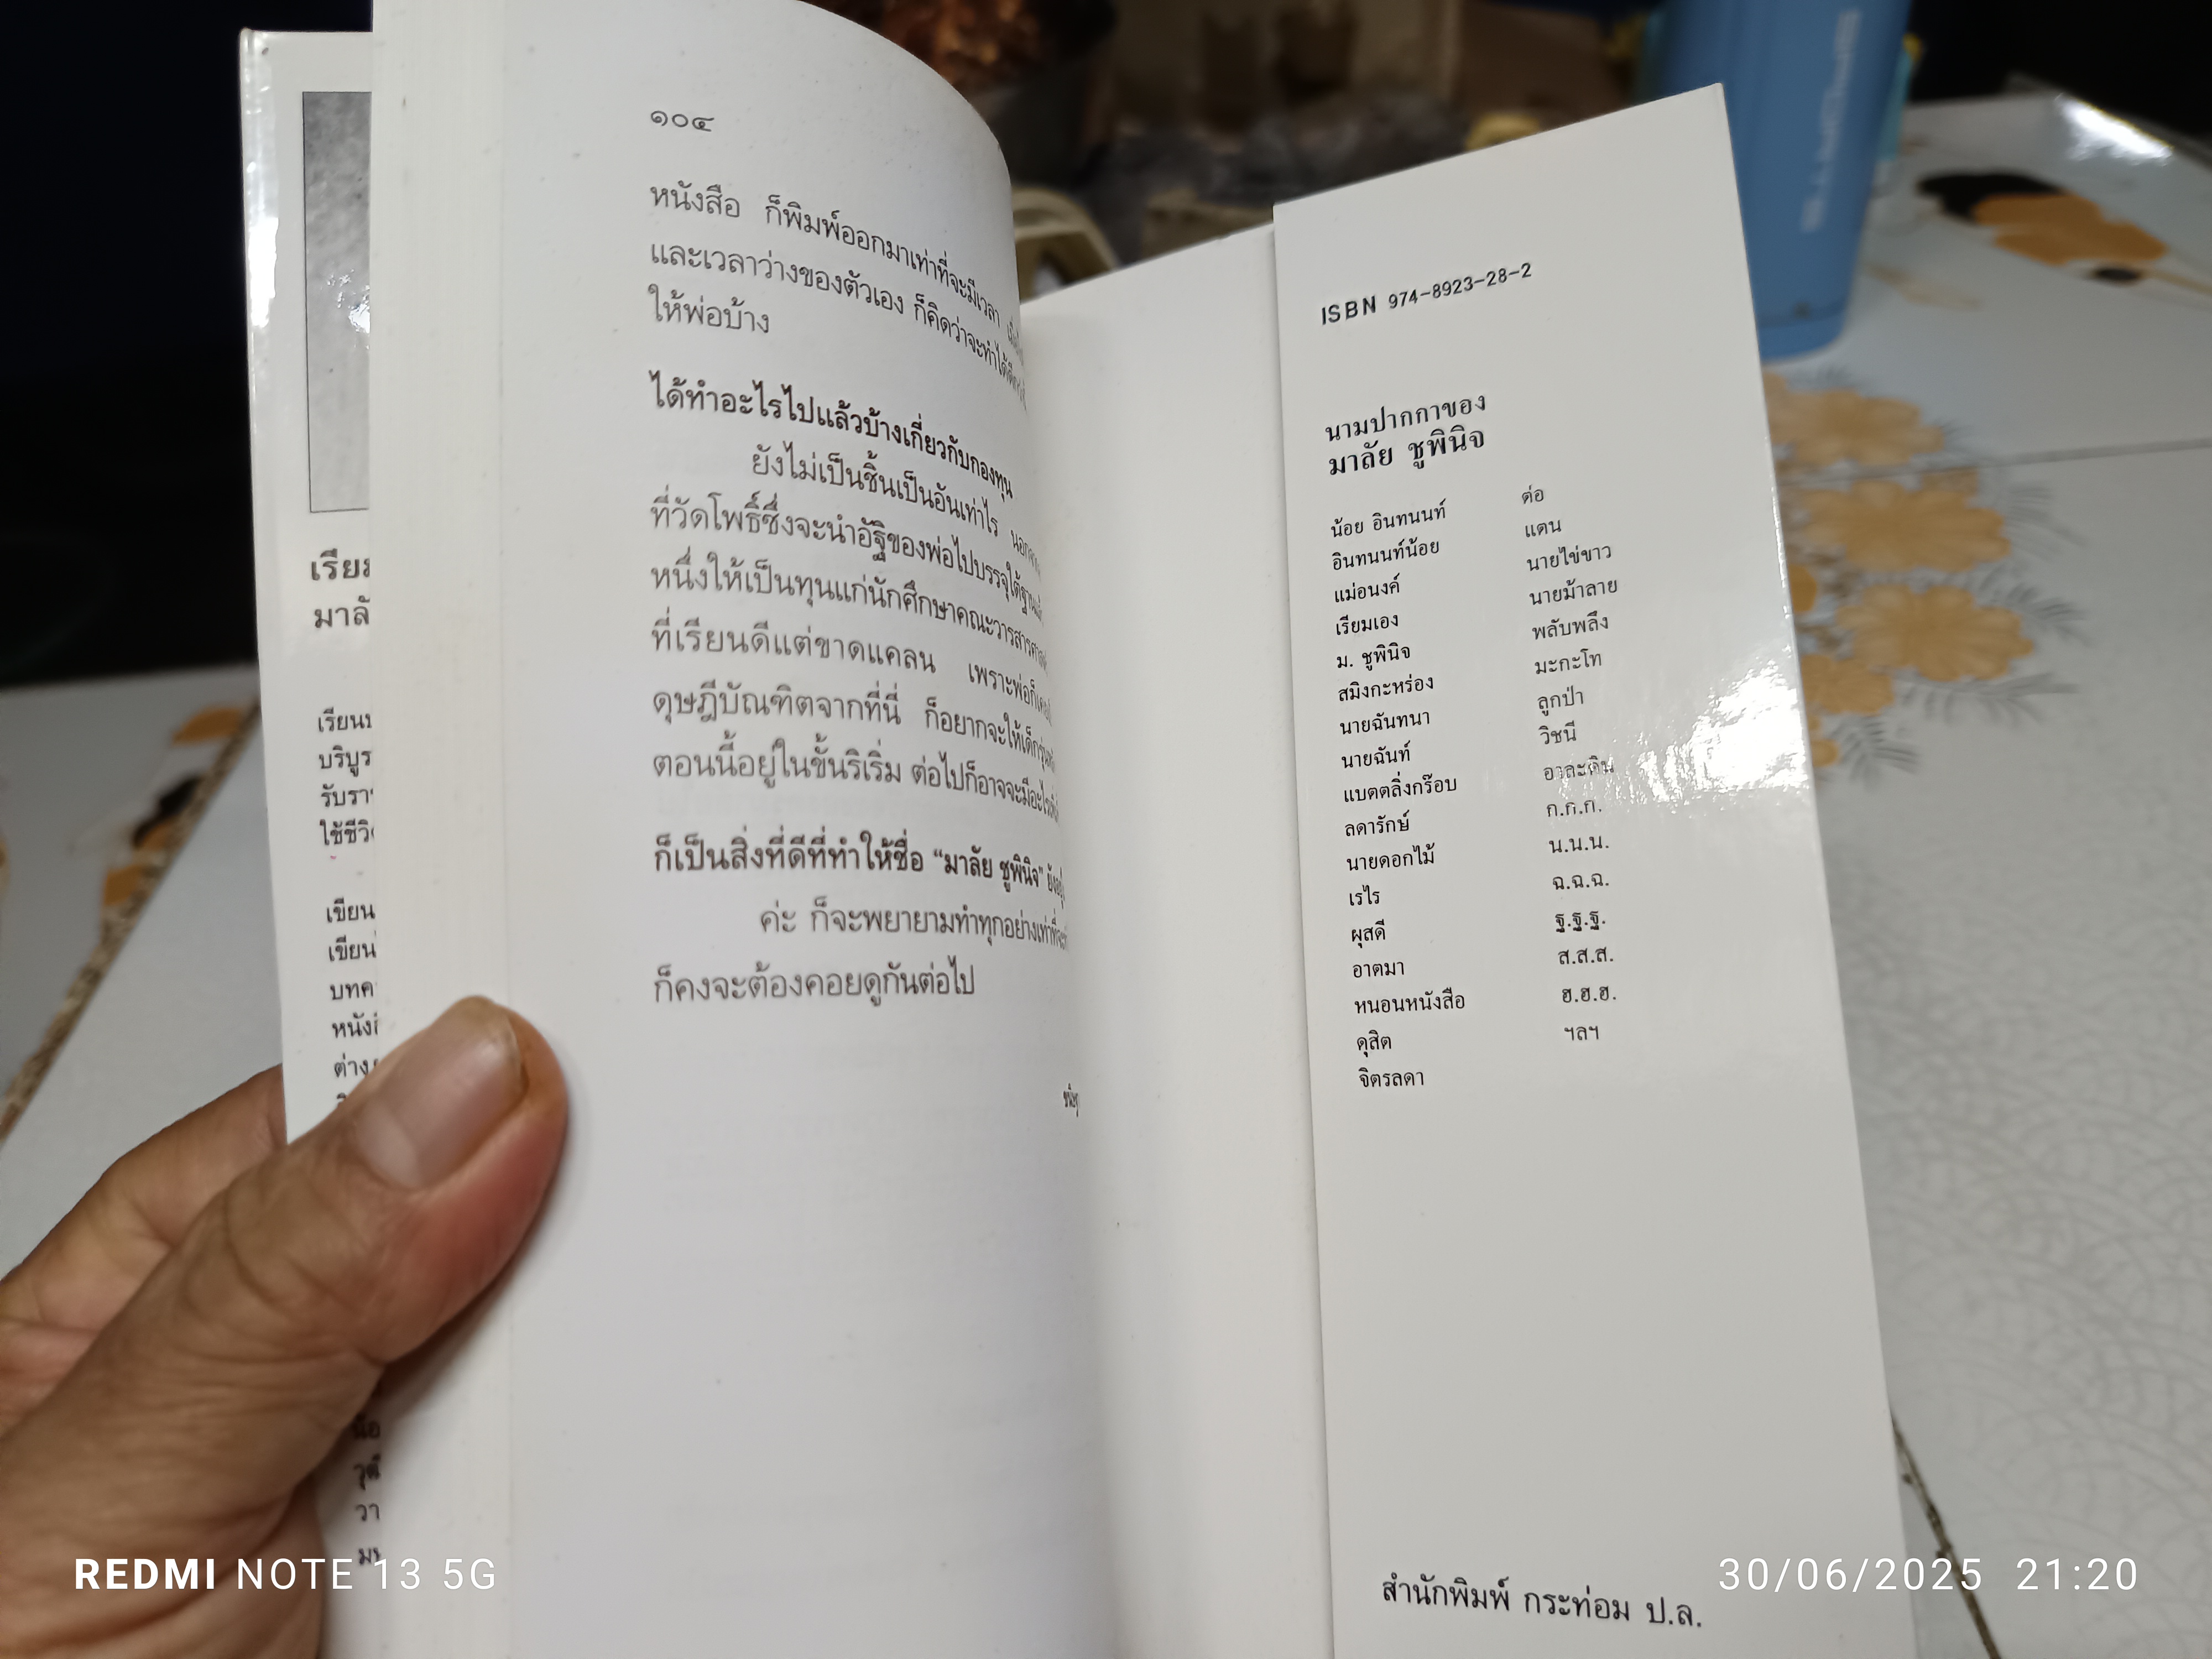 ๑๐๔
หนังสือ ก็พิมพ์ออกมาเท่าที่จะมีเวลา
และเวลาว่างของตัวเอง ก็คิดว่าจะทำได้
ให้พ่อบ้าง
ได้ทำอะไรไปแล้วบ้างเกี่ยวกับกองทุน
ยังไม่เป็นชิ้นเป็นอันเท่าไร
ที่วัดโพธิ์ซึ่งจะนำอัฐิของพ่อไปบรรจุใต้ฐาน
หนึ่งให้เป็นทุนแก่นักศึกษาคณะวารสาร
ที่เรียนดีแต่ขาดแคลน เพราะพ่อก็
ดุษฎีบัณฑิตจากที่นี่ ก็อยากจะให้เด็ก
ตอนนี้อยู่ในขั้นริเริ่ม ต่อไปก็อาจจะมีอะไร
ก็เป็นสิ่งที่ดีที่ทำให้ชื่อ “มาลัย ชูพินิจ”
ค่ะ ก็จะพยายามทำทุกอย่างเท่าที่จะ
ก็คงจะต้องคอยดูกันต่อไป
เรียม
มาลั
เรียน
บริบูร
รับรา
ใช้ชีวิ
เขียน
เขียน
บทค
หนังสื
ต่าง
วา
ISBN 974-8923-28-2
นามปากกาของ
มาลัย ชูพินิจ
น้อย อินทนนท์
อินทนนท์น้อย
แม่อนงค์
เรียมเอง
ม. ชูพินิจ
สมิงกะหร่อง
นายฉันทนา
นายฉันท์
แบตตลิ่งกร๊อบ
ลดารักษ์
นายดอกไม้
เรไร
ผุสดี
อาตมา
หนอนหนังสือ
ดุสิต
จิตรลดา
ต่อ
แตน
นายไข่ขาว
นายม้าลาย
พลับพลึง
มะกะโท
ลูกป่า
วิชนี
อาละดิน
ก.ก.ก.
น.น.น.
ฉ.ฉ.ฉ.
ฐ.ฐ.ฐ.
ส.ส.ส.
ฮ.ฮ.ฮ.
ฯลฯ
สำนักพิมพ์ กระท่อม ป.ล.
REDMI NOTE 13 5G
30/06/2025 21:20